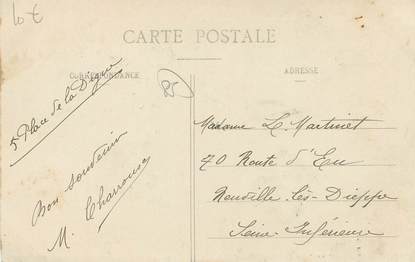 10 €
CARTE POSTALE
CORRESPONDANCE
ADRESSE
25
5 Place de la
Bon souvenir
M.
Madame L. Martinet
70 Route d'Eu
Neuville-lès-Dieppe
Seine-Inférieure